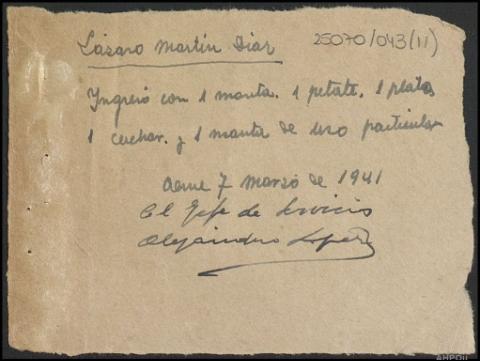 Lázaro Martín Diaz
25070/043(11)
Ingreso con 1 manta. 1 petate. 1 plato,
1 cuchar. y 1 manta de uso particular
7 marzo de 1941
El Gefe de Servicio
Alejandro Lopez
AHPOU